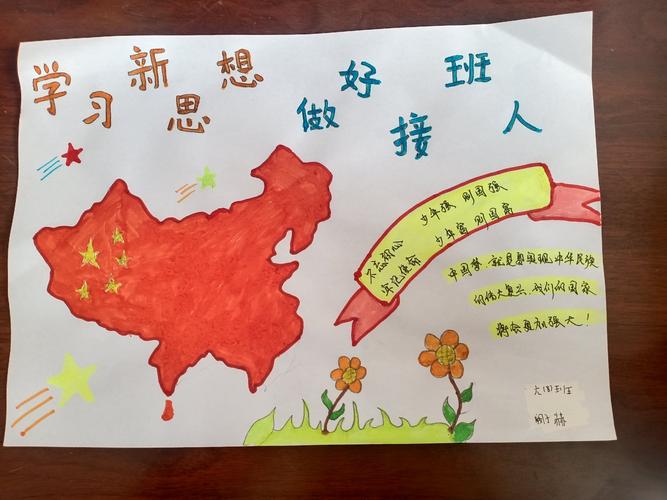 学习新思想
做好接班人
不忘初心
牢记使命
少年强 则国强
少年富 则国富
中国梦.就是要实现.中华民族
的伟大复兴.我们的国家
将会更加强大!